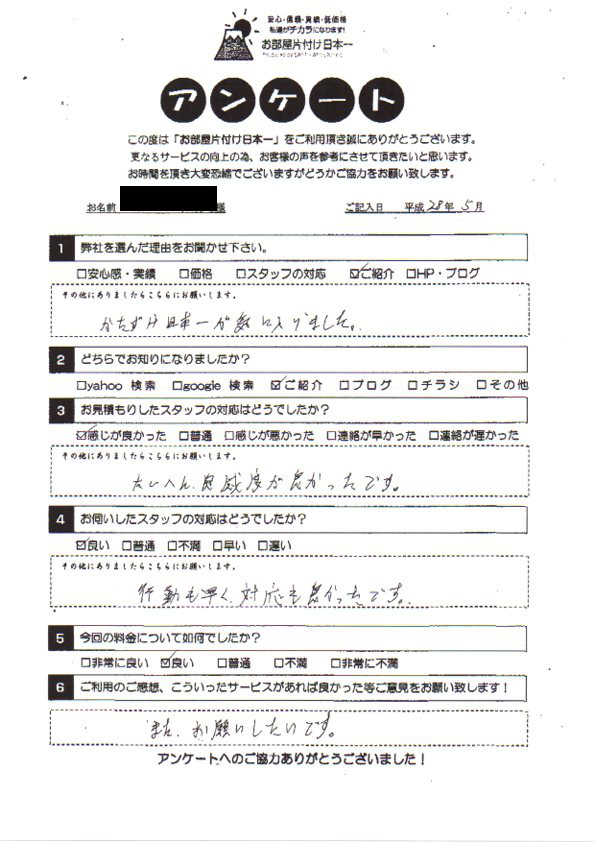 安心・信頼・実績・低価格
私達がチカラになります!
お部屋片付け日本一
アンケート
この度は「お部屋片付け日本一」をご利用頂き誠にありがとうございます。
更なるサービスの向上の為、お客様の声を参考にさせて頂きたいと思います。
お時間を頂き大変恐縮でございますがどうかご協力をお願い致します。
お名前 様 ご記入日 平成28年5月
1 弊社を選んだ理由をお聞かせ下さい。
□安心感・実績 □価格 □スタッフの対応 ☑ご紹介 □HP・ブログ
その他にありましたらこちらにお願いします。
かたずけ日本一が気に入りました。
2 どちらでお知りになりましたか?
□yahoo 検索 □google 検索 ☑ご紹介 □ブログ □チラシ □その他
3 お見積もりしたスタッフの対応はどうでしたか?
☑感じが良かった □普通 □感じが悪かった □連絡が早かった □連絡が遅かった
その他にありましたらこちらにお願いします。
たいへん、好感度が良かったです。
4 お伺いしたスタッフの対応はどうでしたか?
☑良い □普通 □不満 □早い □遅い
その他にありましたらこちらにお願いします。
行動も早く、対応も良かったです。
5 今回の料金について如何でしたか?
□非常に良い ☑良い □普通 □不満 □非常に不満
6 ご利用のご感想、こういったサービスがあれば良かった等ご意見をお願い致します!
また、お願いしたいです。
アンケートへのご協力ありがとうございました!